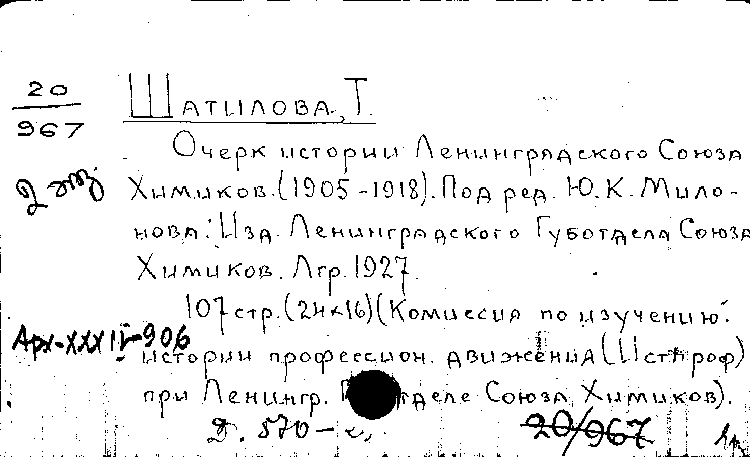 20
967
Шатилова, Т.
Очерк истории Ленинградского Союза
2 экз
Химиков. (1905-1918). Под ред. Ю.К. Мило-
нова. Изд. Ленинградского Губотдела Союза
Химиков. Лгр. 1927.
107 стр. (24×16) (Комиссия по изучению
Арх-XXXII-906
истории професcион. движения (Истпроф)
при Ленингр. Союза Химиков).
Д. 570-
20/967